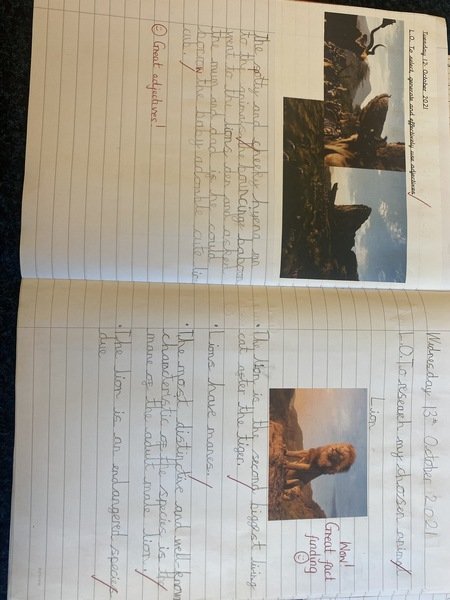 Tuesday 12th October 2021
L.O. To select, generate and effectively use adjectives
The and hyena
to the the baboon
went to the lions den and asked
the mum and dad is he could
borrow the baby cute
cub.
☺ Great adjectives!
Wednesday 13th October 2021
L.O. To reseach my chosen animal
Lion
Wow!
Great fact
finding
☺
• The lion is the second biggest living
cat after the tiger.
• Lions have manes.
• The most distinctive and well-known
characteristic of the species is the
mane of the adult male lion.
• The lion is an endangered species
due